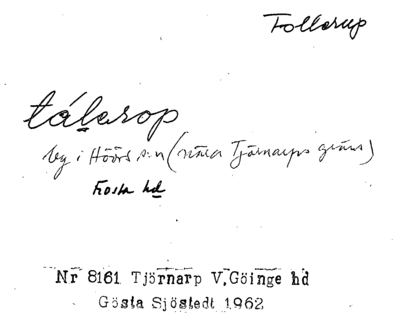 Tollarup
tálarop
by i Höörs sn (nära Tjörnarps gräns)
Frosta hd
Nr 8161 Tjörnarp V.Göinge hd
Gösta Sjöstedt 1962